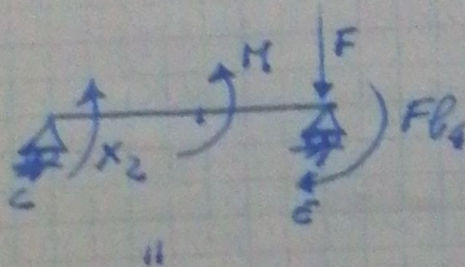 M F
X₂ Fl₄
C
"